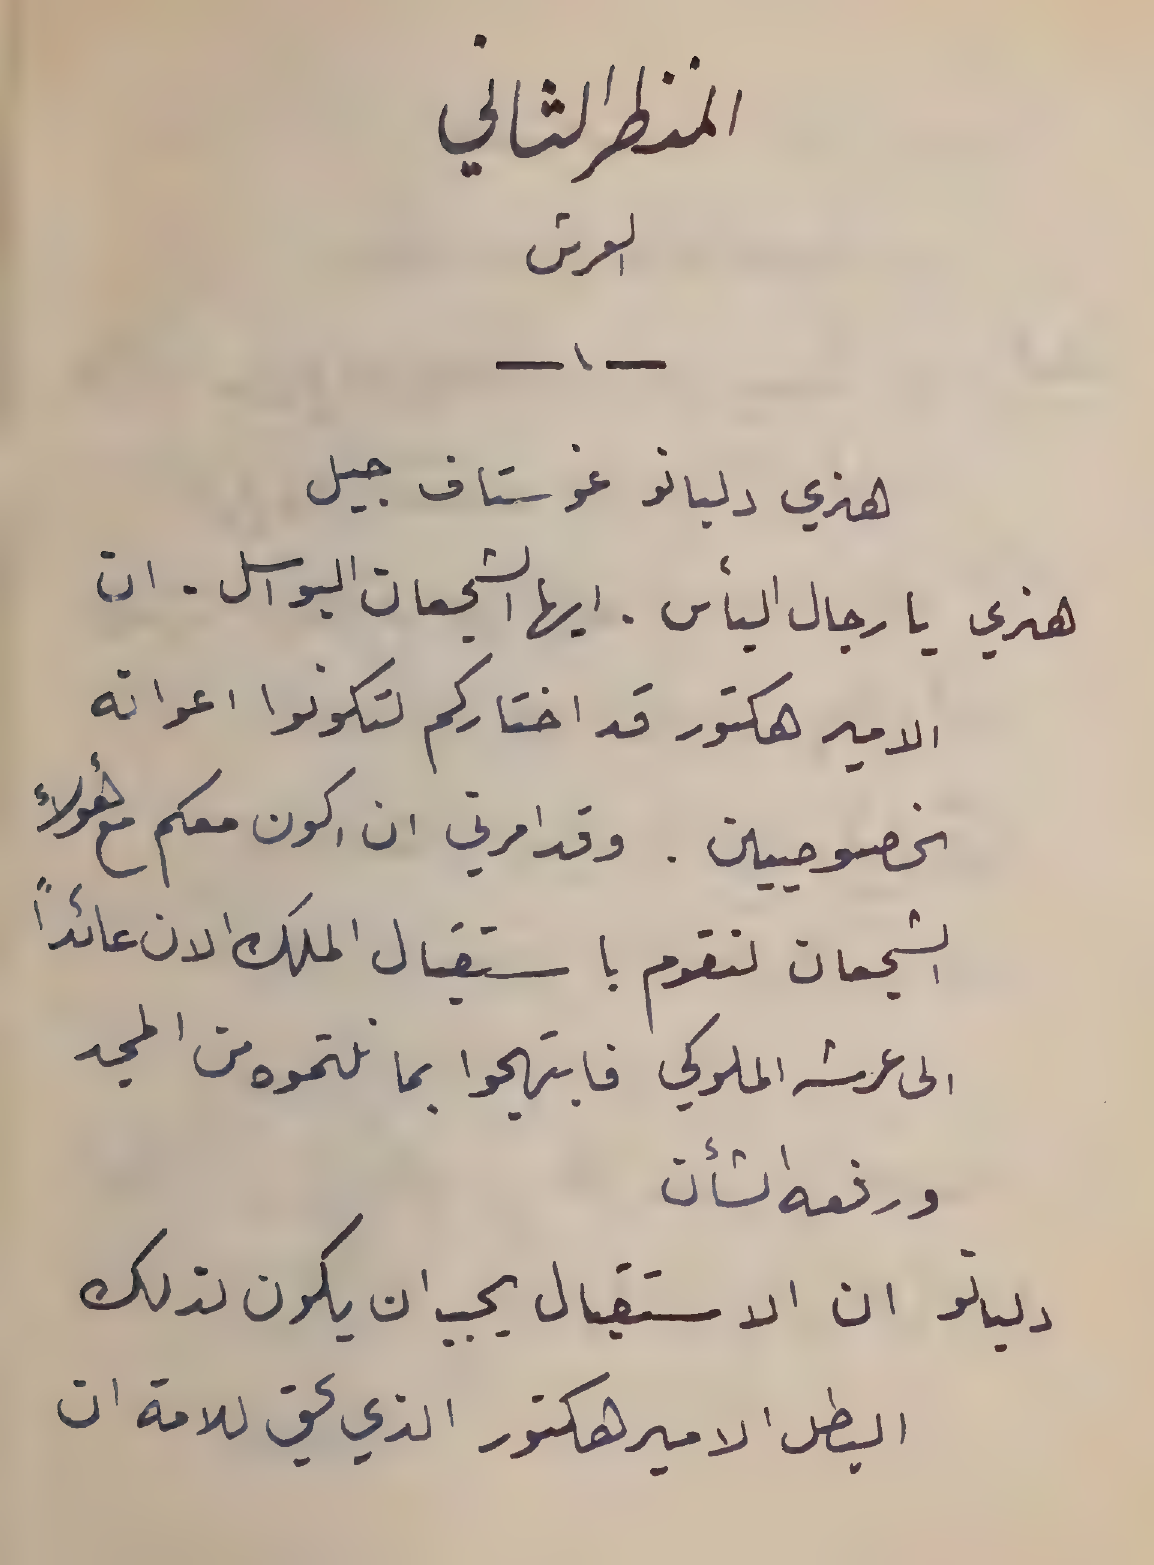 المنظر الثاني
العرش
— ١ —
هنري دلبانو غوستاف جيل
هنري يا رجال البأس . ايها الشجعان البواسل . ان
الامير هكتور قد اختاركم لتكونوا اعوانه
خصوصيين . وقد امرني ان اكون معكم مع هؤلاء
الشجعان لنقوم باستقبال الملك الان عائداً
الى عرشه الملوكي فابتهجوا بما نلتموه من المجد
ورفعه الشأن
دلبانو ان الاستقبال يجب ان يكون لذلك
البطل الامير هكتور الذي يحق للامة ان